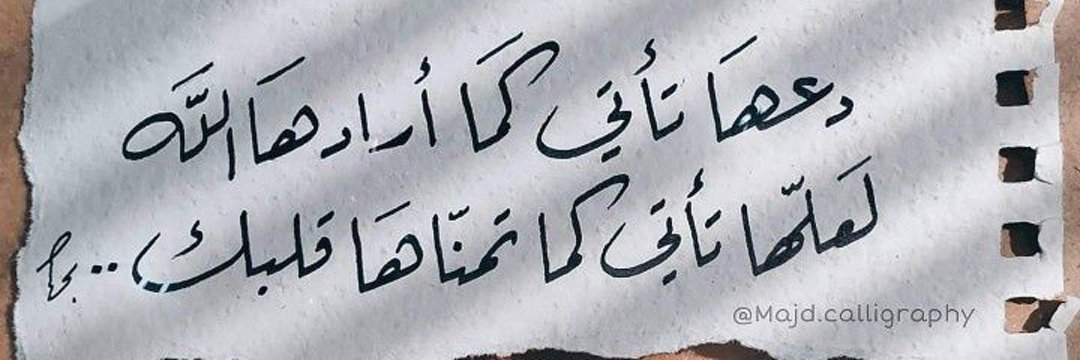 دعها تأتي كمَا أرادها اللَّه
لعَلّها تأتي كما تمنّاهَا قلبك ..
@Majd.calligraphy